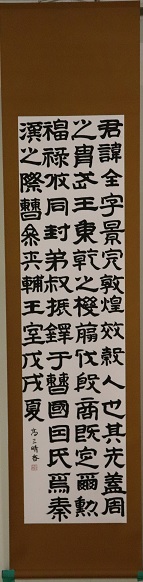 君諱全字景完敦煌效穀人也其先蓋周
之胄武王秉乾之機翦伐殷商既定爾勲
福祿攸同封弟叔振鐸于曹國因氏焉秦
漢之際曹參夾輔王室戊戌夏